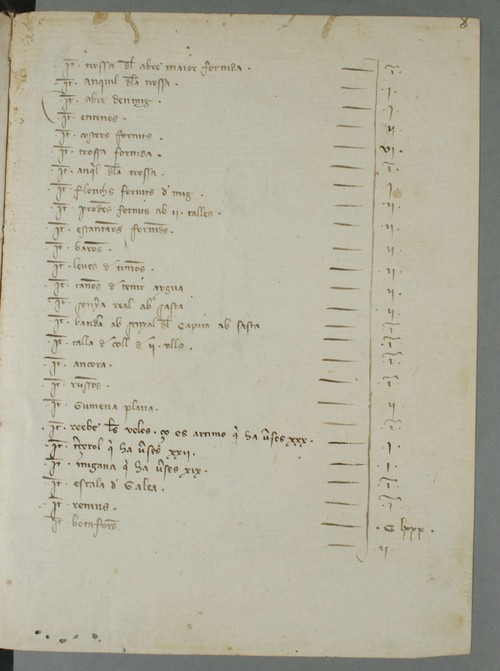 8
It. trossa dl abre maior fornida . j.
It. anquil dla trossa . j.
It. abre demig . j
It. entenes . ij
It. costers fornits . vj.
It. trossa fornida . j.
It. anql dla trossa . j
It. fornits d mig . ij
It. prodes fornits ab ii. talles . ij
It. estantars fornids . ij
It. baros . ij
It. leves d timos . ij
It. d tenir aygua ij
It. senyera real ab fasta j.
It. bandera ab senyal dl Capita ab fasta j.
It. talla d coll d ii. ulls . j.
It. ancora . j.
It. russos . ij
It. Gumena plana . j.
It. reebe les veles . ço es artimo q ha vses xxx . j
It. terçerol q ha vses xxii . j
It. migana q ha vses xix . j.
It. escala d Galea . j.
It. remus . C lxxx .
It. botafors ij